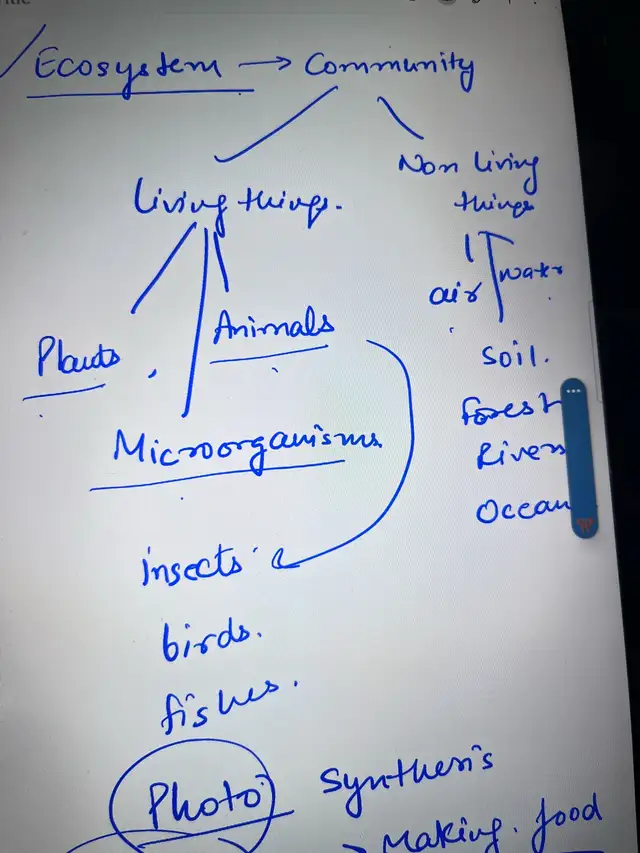 Ecosystem → Community
Non living
things
Living things.
air water
Animals
Plants
Soil.
Forest
Microorganisms
River
Ocean
insects
birds.
fishes.
Photo synthesis
Making food